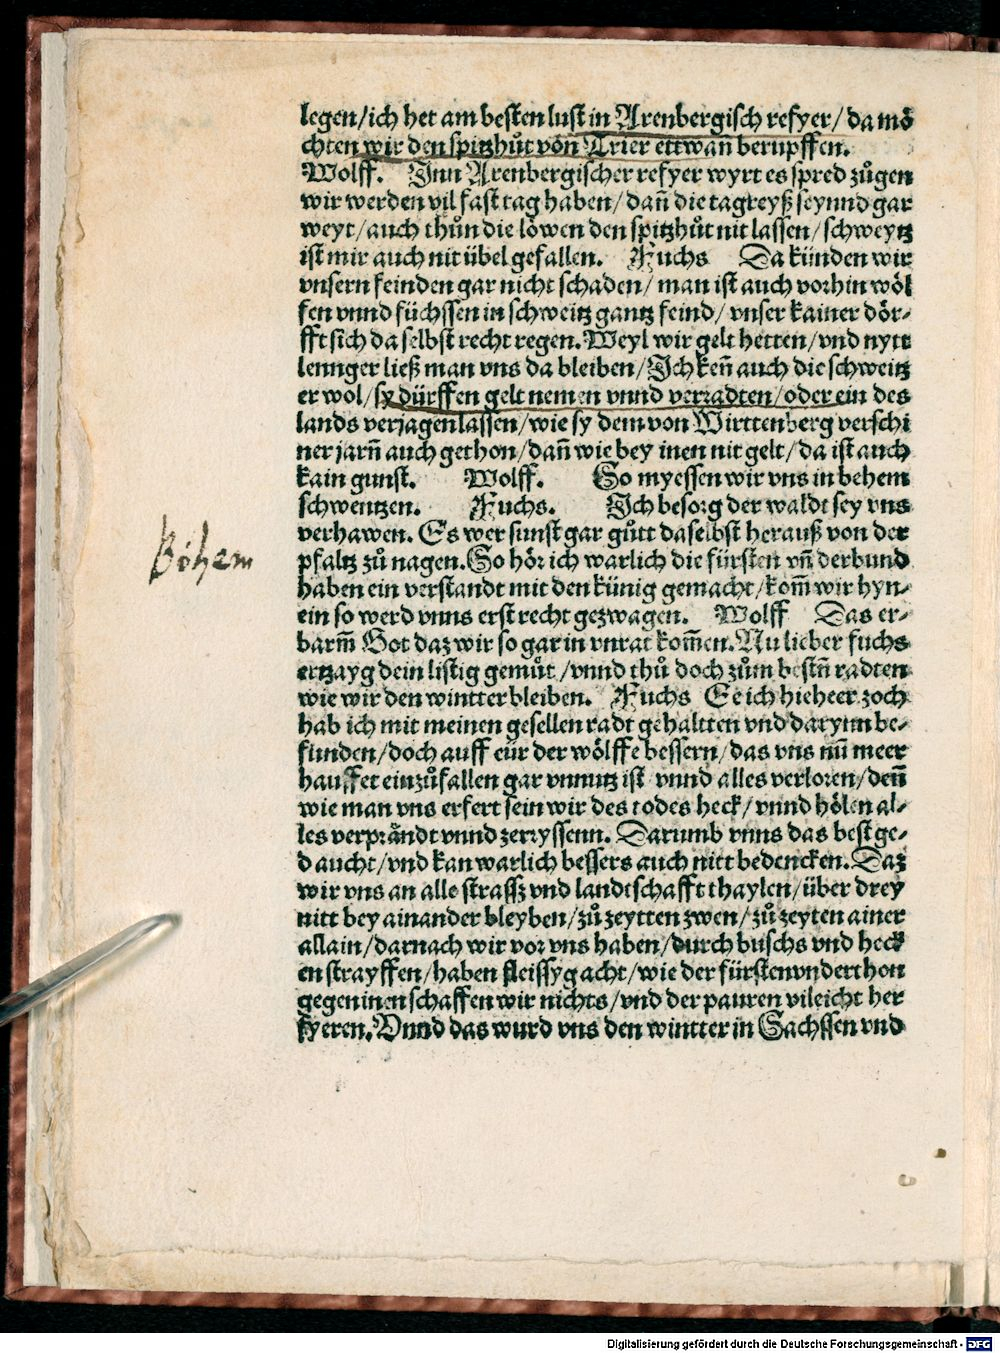 legen/ich het am besten lust in Arenbergisch refyer/da mö
chten wir den spitzhůt von Trier ettwan berupffen.
Wolff. Inn Arenbergischer refyer wyrt es spred zůgen
wir werden vil fast tag haben/dañ die tagreyß seynnd gar
weyt/auch thůn die löwen den spitzhůt nit lassen/schweytz
ist mir auch nit übel gefallen. Fuchs Da künden wir
vnsern feinden gar nicht schaden/man ist auch vorhin wöl
fen vnnd füchssen in schweitz gantz feind/vnser kainer dör-
fft sich daselbst recht regen. Weyl wir gelt hetten/vnd nytt
lennger ließ man vns da bleiben/Ich keñ auch die schweitz
er wol/sy dürffen gelt nemen vnnd verradten/oder ein des
lands verjagen lassen/wie sy dem von Wirttenberg verschi
ner jarñ auch gethon/dañ wie bey inen nit gelt/da ist auch
kain gunst. Wolff. So myessen wir vns in behem
schwentzen. Fuchs. Ich besorg der waldt sey vns
verhawen. Es wer sunst gar gůtt daselbst herauß von der
pfaltz zů nagen. So hör ich warlich die fürsten vñ der bund
haben ein verstandt mit den künig gemacht/kom̃ wir hyn-
ein so werd vnns erst recht gezwagen. Wolff Das er-
barm̃ Got daz wir so gar in vnrat kom̃en. Nu lieber fuchs
ertzayg dein listig gemůt/vnnd thů doch zům bestñ radten
wie wir den wintter bleiben. Fuchs Ee ich hieheer zoch
hab ich mit meinen gesellen radt gehaltten vnd darynn be-
funden/doch auff eür der wölffe bessern/das vns nũ meer
hauffet einzůfallen gar vnnutz ist vnnd alles verloren/deñ
wie man vns erfert sein wir des todes heck/vnnd hölen al-
les verprändt vnnd zerryssenn. Darumb vnns das best ge-
daucht/vnd kan warlich bessers auch nitt bedencken. Daz
wir vns an alle strassz vnd landtschafft thaylen/über drey
nitt bey ainander bleyben/zů zeytten zwen/zů zeyten ainer
allain/darnach wir vor vns haben/durch buschs vnd heck
en strayffen/haben fleissyg acht/wie der fürsten vnderthon
gegen inen schaffen wir nichts/vnd der pauren vileicht her
fyeren. Vnnd das wurd vns den wintter in Sachssen vnd
Böhem
Digitalisierung gefördert durch die Deutsche Forschungsgemeinschaft - DFG